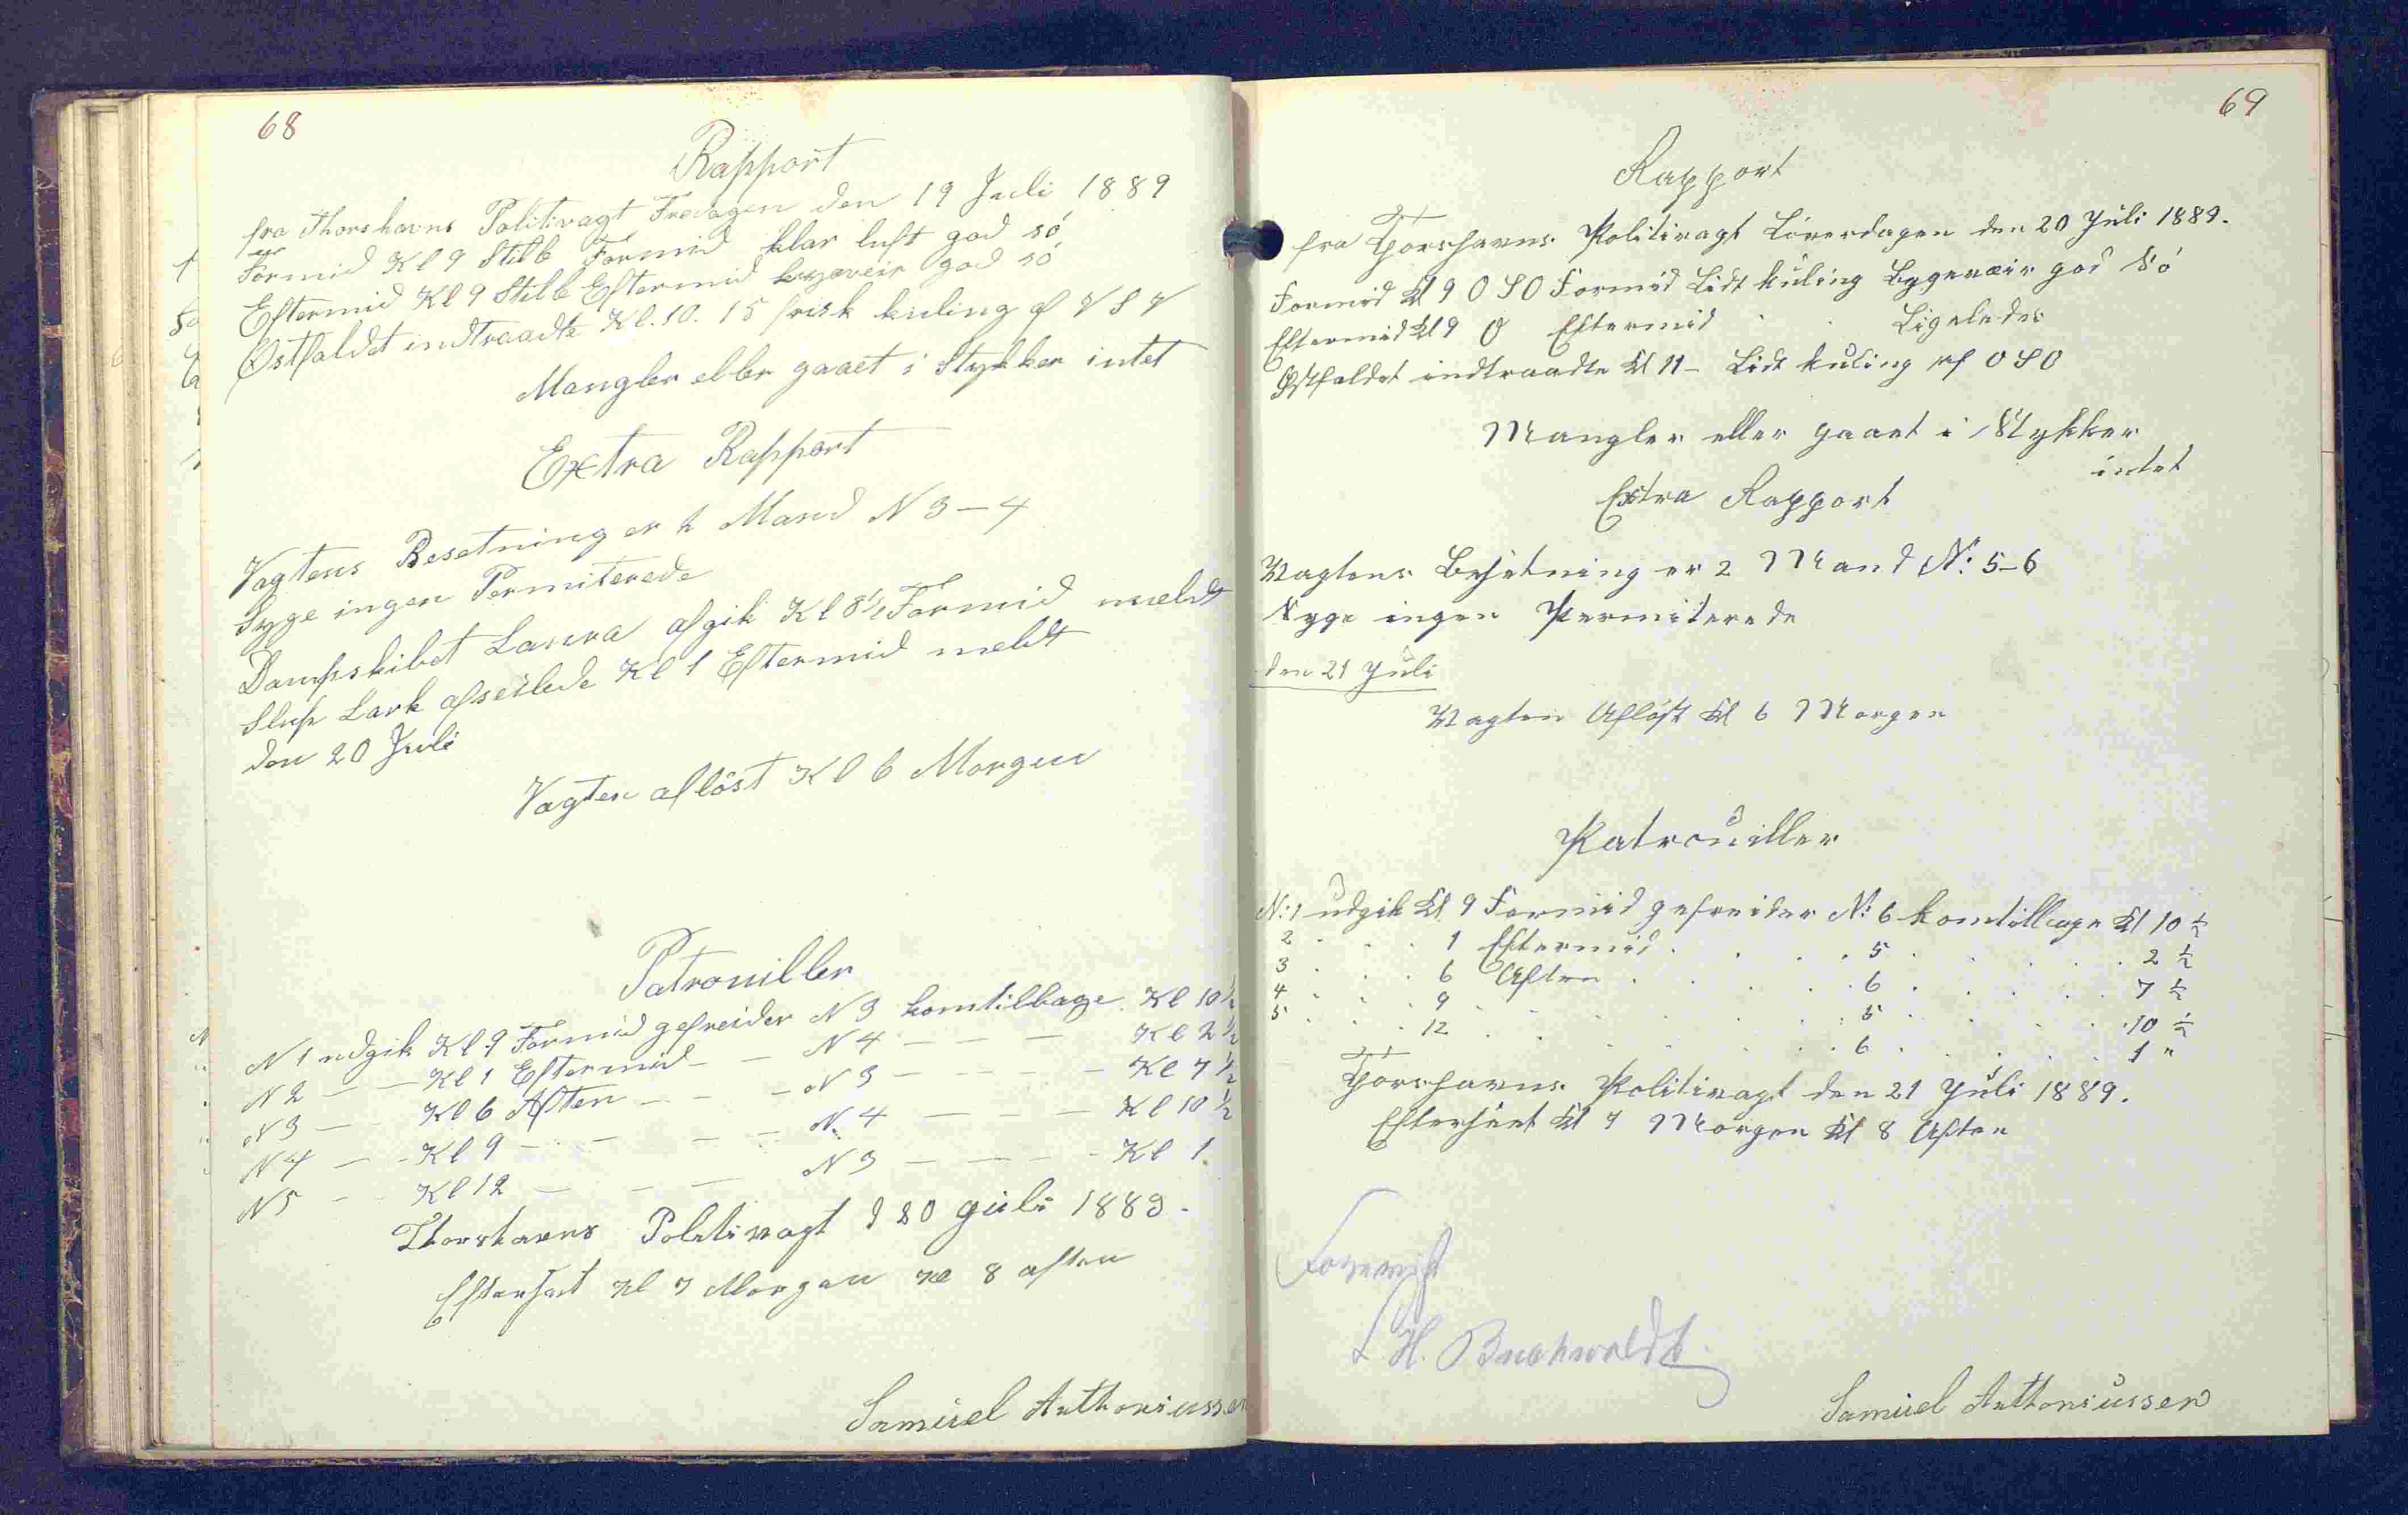 68
Rapport
fra Thorshavns Politivagt Fredagen den 19 Juli 1889
Formid Kl 9 Stille Formid klar luft god só
Eftermid Kl 9 Stille Eftermid bygeveir god só
Østfaldet indtraadte Kl. 10. 15 frisk kuling af V S V
Mangler eller gaaet i Stykker intet
Extra Rapport
Vagtens Besetning er 2 Mand N 3 – 4
Syge ingen Permiterede
Dampskibet Laura afgik Kl 8½ Formid meldt
Slup Lark afseilede Kl 1 Eftermid meldt
den 20 Juli
Vagten aflöst Kl 6 Morgen
Patrouiller
N 1 udgik Kl 9 Formid gefreider N 3 komtilbage Kl 10 ½
N 2 — — Kl 1 Eftermid — — N 4 — — — Kl 2 ½
N 3 — — Kl 6 Aften — — — N 3 — — — — Kl 7 ½
N 4 — — Kl 9 — — — — N 4 — — — Kl 10 ½
N 5 — — Kl 12 — — — N 3 — — — — Kl 1.
Thorshavns Politivagt d 20 Juli 1889.
Efterseet Kl 7 Morgen Kl 8 aften
Samuel Anthoniussen
69
Rapport
fra Thorshavns Politivagt Löverdagen den 20 Juli 1889.
Formid Kl 9 O S O Formid Lidt kuling Bygeveir god Só
Eftermid Kl 9 O Eftermid Ligeledes
Østfaldet indtraadte Kl 11 – Lidt kuling af O S O
Mangler eller gaaet i Stykker
intet
Extra Rapport
Vagtens Besetning er 2 Mand N: 5–6
Syge ingen Permiterede
den 21 Juli
Vagten Aflöst Kl 6 Morgen
Patrouiller
N: 1 udgik Kl 9 Formid gefreider N: 6 komtilbage Kl 10 ½
2 . . . 1 Eftermid . . . . 5 . . . . . 2 ½
3 . . . 6 Aften . . . . . 6 . . . . . 7 ½
4 . . . 9 . . . . . . . 5 . . . . . 10 ½
5 . . . 12 . . . . . . . 6 . . . . . 1 "
Thorshavns Politivagt den 21 Juli 1889.
Efterseet Kl 7 Morgen Kl 8 Aften
Forevist
H. Buchwaldt.
Samuel Anthoniussen